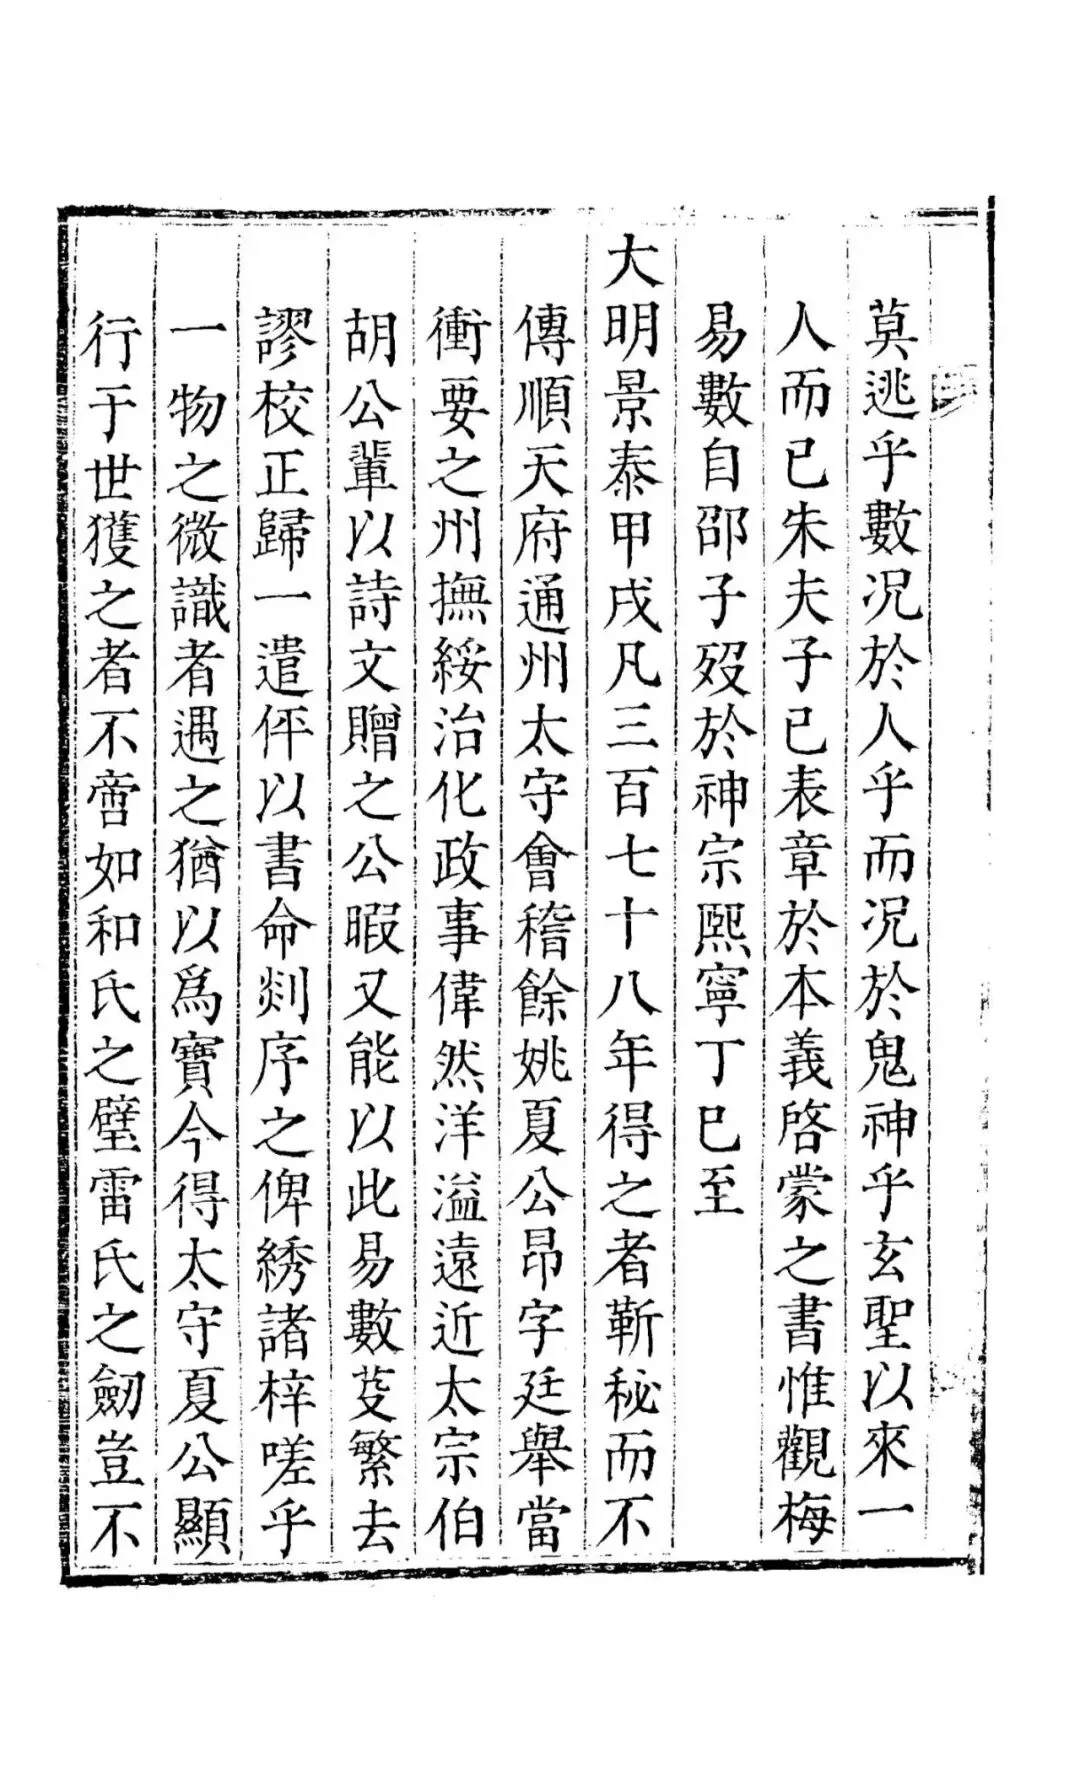 莫逃乎數况於人乎而况於鬼神乎玄聖以來一
人而已朱夫子已表章於本義啓蒙之書惟觀梅
易數自邵子歿於神宗熙寧丁巳至
大明景泰甲戌凡三百七十八年得之者靳秘而不
傳順天府通州太守會稽餘姚夏公昂字廷舉當
衝要之州撫綏治化政事偉然洋溢遠近太宗伯
胡公輩以詩文贈之公暇又能以此易數芟繁去
謬校正歸一遣伻以書命剡序之俾綉諸梓嗟乎
一物之微識者遇之猶以爲寶今得太守夏公顯
行于世獲之者不啻如和氏之璧雷氏之劒豈不